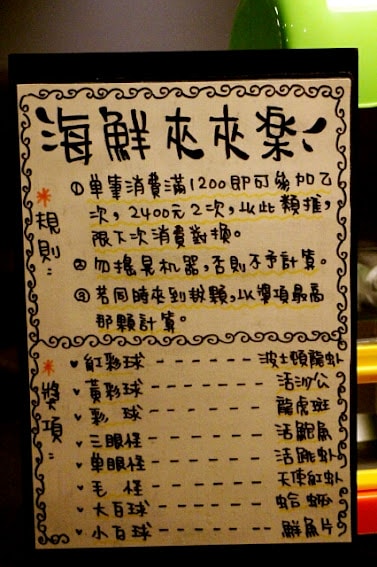 海鮮夾夾樂!
*規則:
①單筆消費滿1200即可參加乙
次,2400元2次,以此類推,
限下次消費對換。
②勿搖晃机器,否則不予計算。
③若同時夾到數顆,以獎項最高
那顆計算。
*獎項:
♥紅彩球------波士頓龍虾
♥黃彩球------活沙公
♥彩 球------龍虎斑
♥三眼怪------活鮑魚
♥單眼怪------活跳虾
♥毛 怪------天使紅虾
♥大百球------蛤蜊
♥小百球------鮮魚片